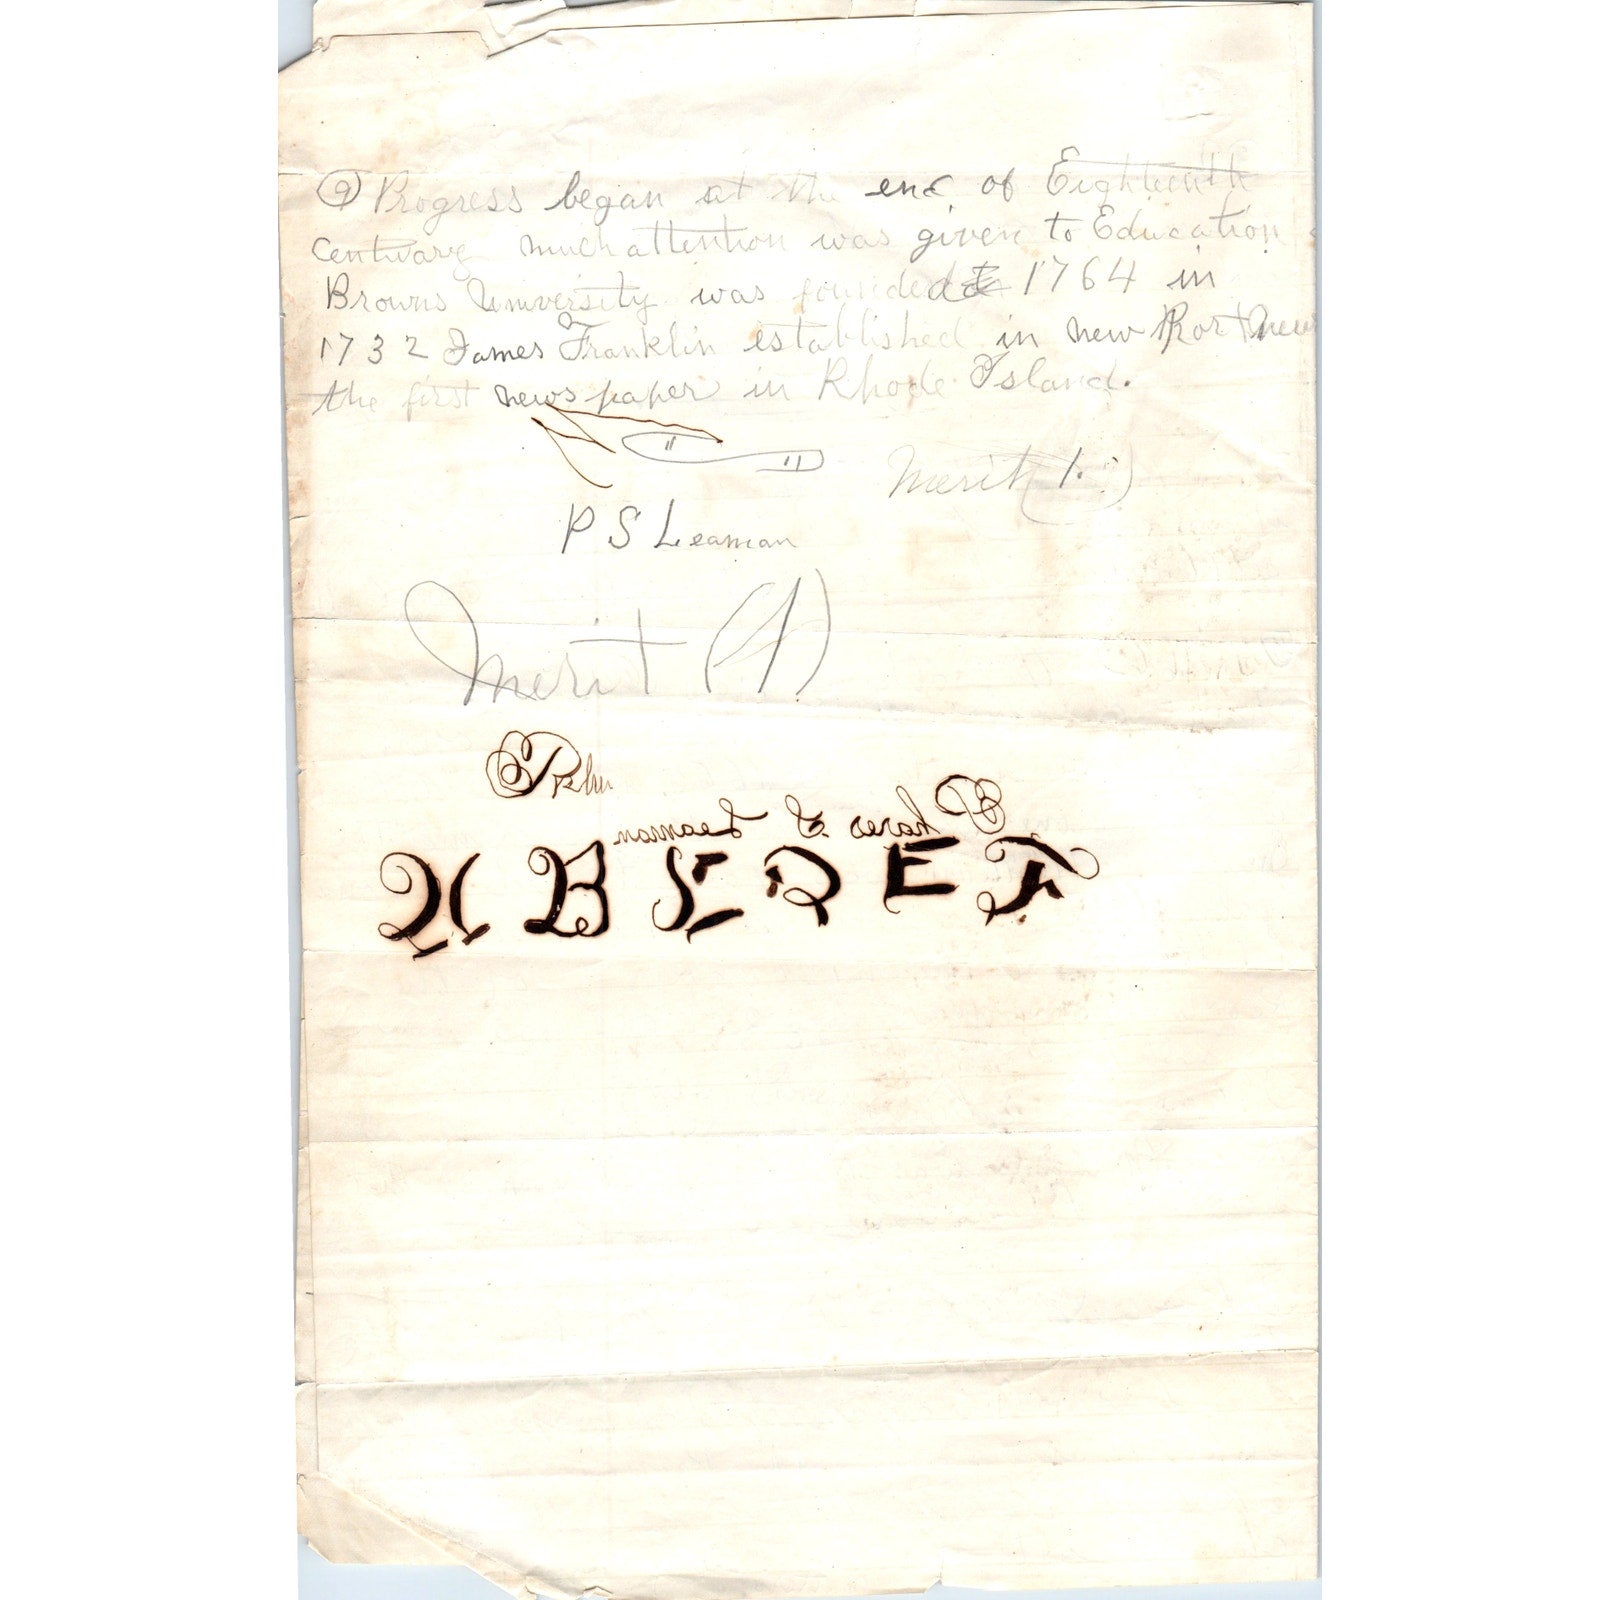 (9) Progress began at the end of Eighteenth
Centuary much attention was given to Education
Browns University was founded 1764 in
1732 James Franklin established in new Port
the first news paper in Rhode Island.
Merit (1.)
P S Leaman
Merit (1)
Phares S Leaman
A B C D E F